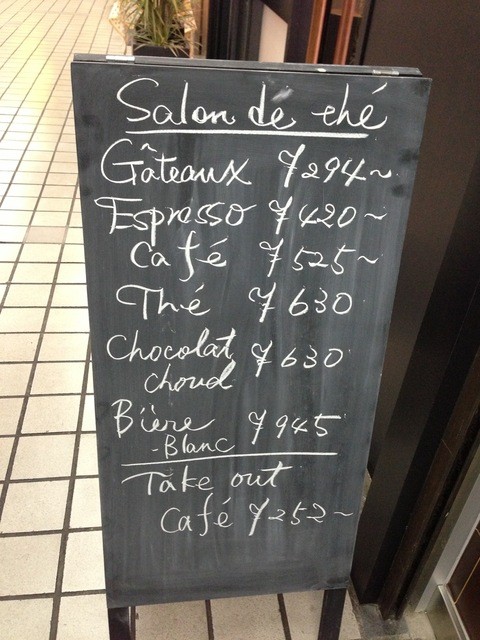 Salon dé thé
Gâteaux ¥294~
Espresso ¥420~
Café ¥525~
Thé ¥630
Chocolat ¥630
choud
Bière ¥945
-Blanc
Take out
Café ¥252~